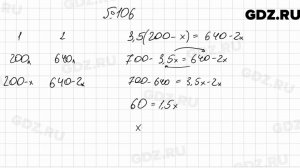 GDZ.RU
№106
1 2
3,5(200-x) = 640-2x
200л 640л
700-3,5x = 640-2x
200-x 640-2x
700-640 = 3,5x-2x
60 = 1,5x
x
GDZ.RU